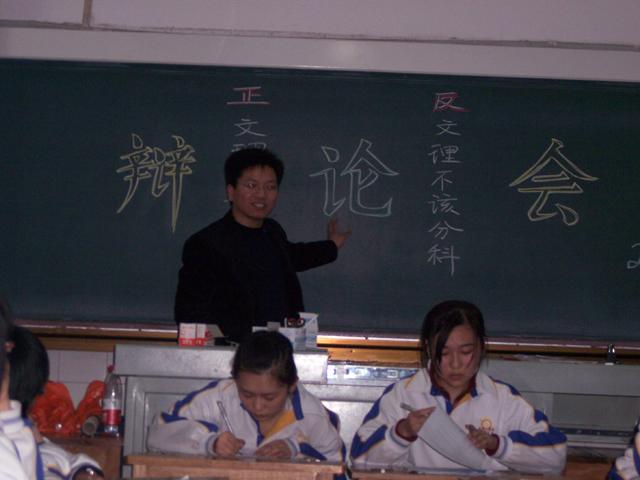 辩论会
正
文理
反
文理不该分科